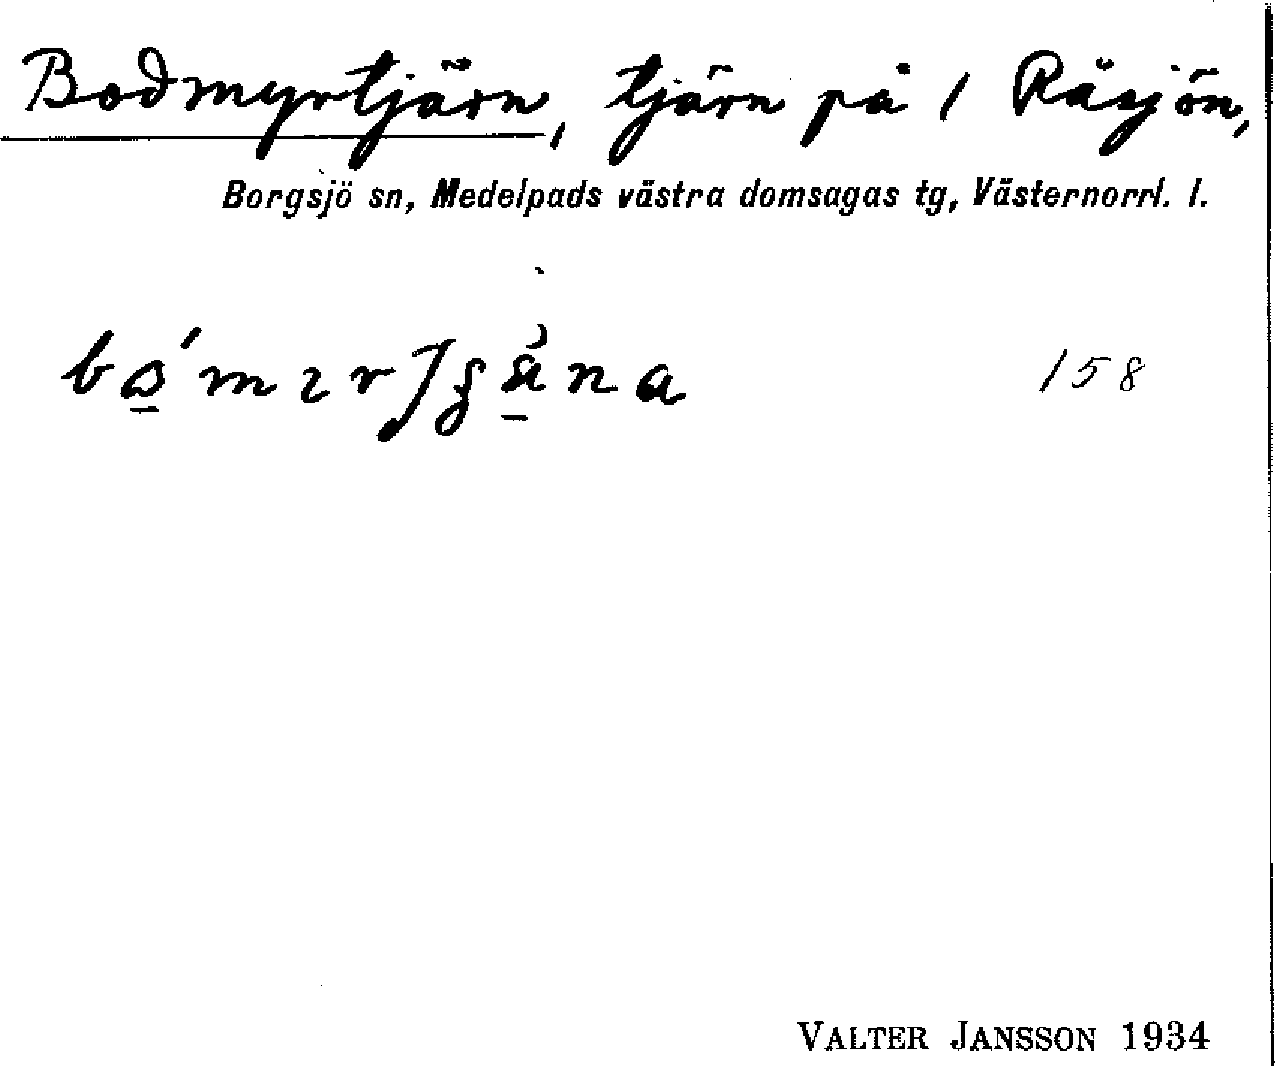 Bodmyrtjärn, tjärn på 1 Räsjön,
Borgsjö sn, Medelpads västra domsagas tg, Västernorrl. l.
158
VALTER JANSSON 1934